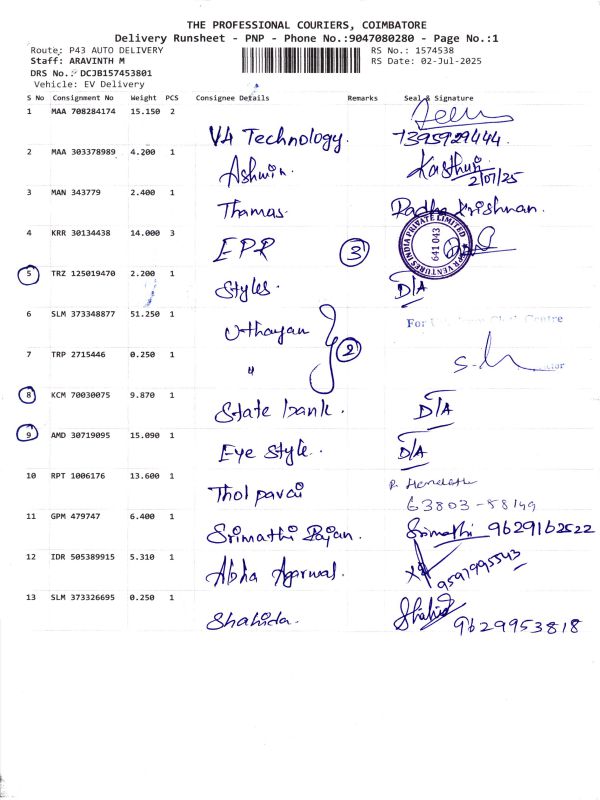 THE PROFESSIONAL COURIERS, COIMBATORE
Delivery Runsheet - PNP - Phone No.:9047080280 - Page No.:1
Route: P43 AUTO DELIVERY RS No.: 1574538
Staff: ARAVINTH M RS Date: 02-Jul-2025
DRS No.: DCJB157453801
Vehicle: EV Delivery
S No Consignment No Weight PCS Consignee Details Remarks Seal & Signature
1 MAA 708284174 15.150 2
V4 Technology. 7395929444.
2 MAA 303378989 4.200 1
Ashwin. Kasthuri
2/07/25
3 MAN 343779 2.400 1
Thamas. Radha Krishnan.
4 KRR 30134438 14.000 3
EPR 3 VENTURES INDIA PRIVATE LIMITED 641 043
5 TRZ 125019470 2.200 1
Styles. D/A
6 SLM 373348877 51.250 1
Uthayan For Centre
7 TRP 2715446 0.250 1
" 2
8 KCM 70030075 9.870 1
State bank. D/A
9 AMD 30719095 15.090 1
Eye Style. D/A
10 RPT 1006176 13.600 1
Thol pavai 63803-58149
11 GPM 479747 6.400 1
Srimathi Rajan. Srimathi 9629162522
12 IDR 505389915 5.310 1
Abha Agarwal. 9597995543
13 SLM 373326695 0.250 1
Shahida. Shahid 9629953818